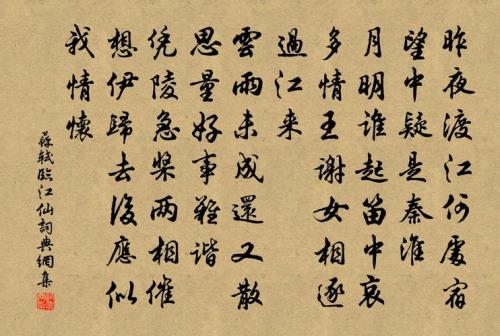 昨夜渡江何處宿
望中疑是秦淮
月明誰起笛中哀
多情王謝女相逐
過江来
雲雨未成還又散
思量好事難諧
凭陵急槳兩相催
想伊歸去後應似
我情懷
蘇軾臨江仙詞典網集